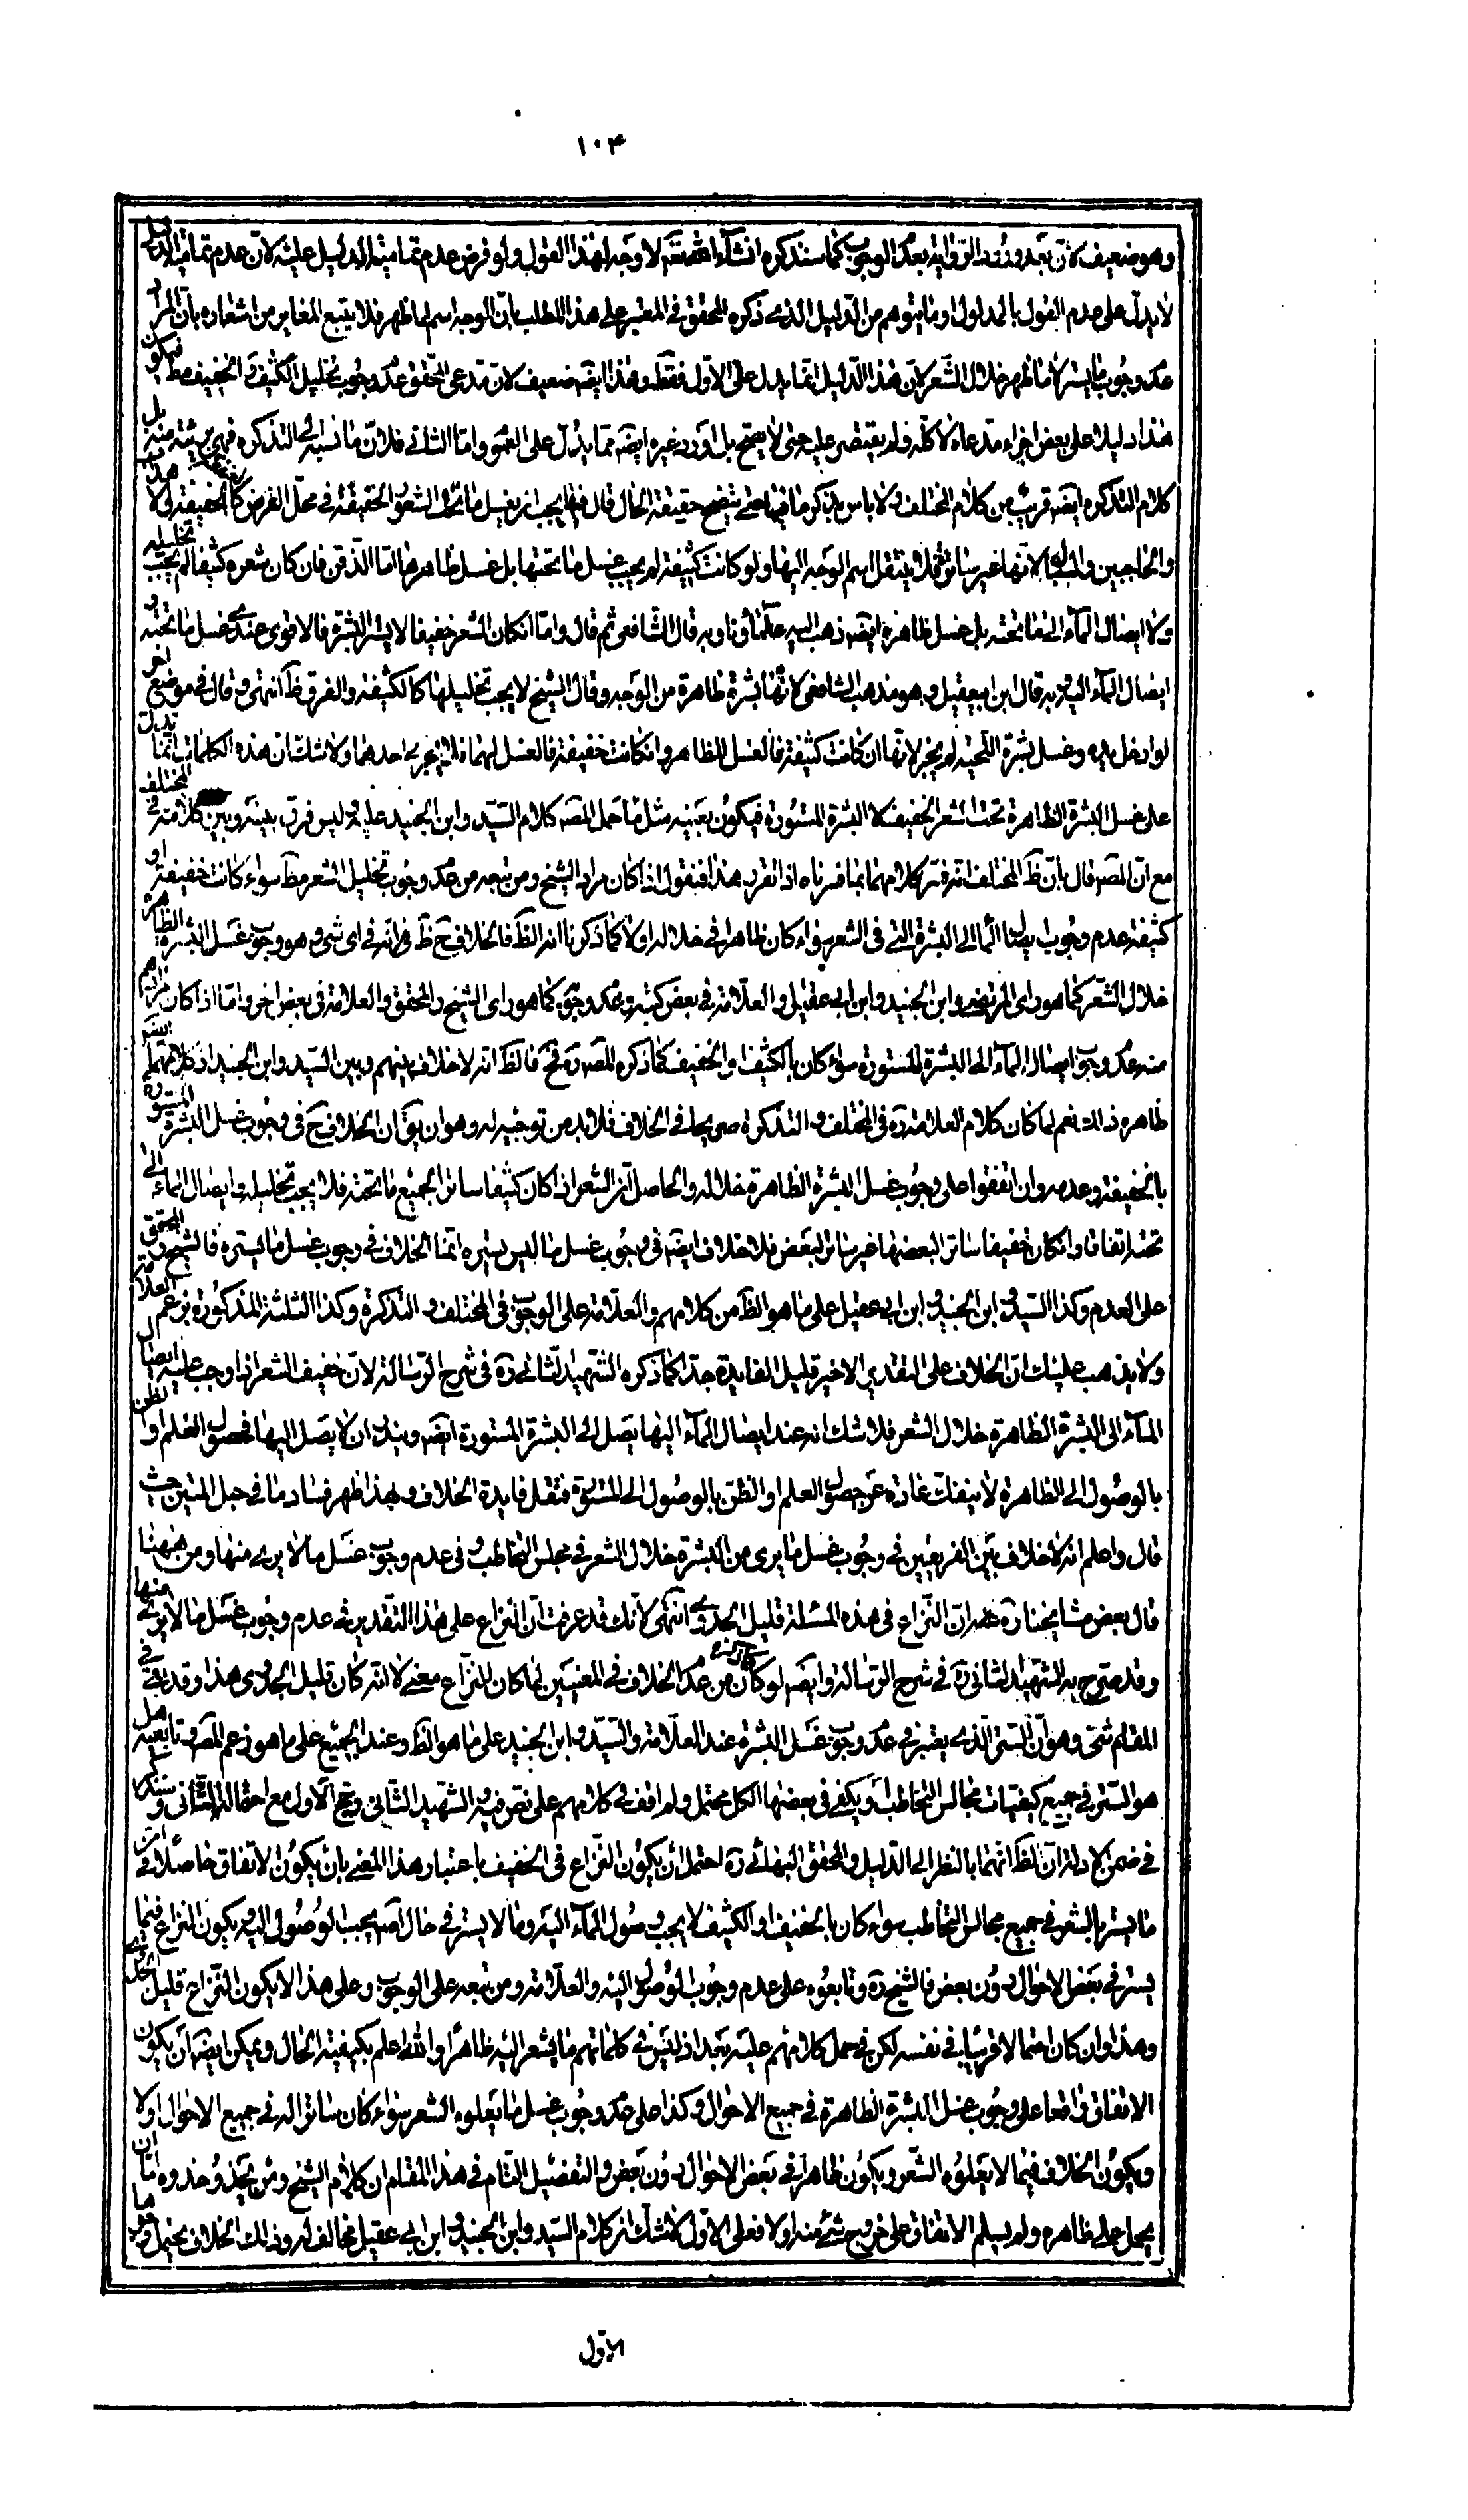 ١٠٤
وهو ضعيف لان بعد ورود الرواية بعدم الوجوب كما سنذكره انشآء الله تعالى لا وجه لهذا القول ولو فرض عدم تمامية الدليل عليه لان عدم تمامية الدليل
لا يدل على عدم القول بالمدلول وما يتوهم من الدليل الذى ذكره المحقق فى المعتبر على هذا المطلب بان الوجه اسم لما ظهر فلا يتبع المغاير من اشعاره بان المراد
عدم وجوب ما يستر لا ما ظهر خلال الشعر لان هذا الدليل انما يدل على الاول فقط وهذا ايضه ضعيف لان مدعى المحقق عدم وجوب تخليل الكثيف والخفيف مط فيكون
هذا دليلا على بعض اجزاء مدعاه لا كله ولم يقتصر عليه حتى لا يصح بل اورد غيره ايضه مما يدل على العموم واما الثانى فلان ما نسبه الى التذكره فهى بريئة منه بل
كلام التذكره ايضه قريب من كلام المختلف ولا باس بذكر ما فيها حتى يتضح حقيقة الحال قال فيها يجب ان يغسل ما تحت الشعور الخفيفة فى محل الفرض كالخفيفة والاهداب
والحاجبين والشارب لانها غير ساترة فلا ينتقل اسم الوجه اليها ولو كانت كثيفة لم يجب غسل ما تحتها بل غسل ظاهرها اما الذقن فان كان شعره كثيفا لم يجب تخليله
ولا ايصال المآء الى ما تحته بل غسل ظاهره ايضه ذهب اليه علمآؤنا وبه قال الشافعى ثم قال واما ان كان الشعر خفيفا لا يستر البشرة فالاقوى عندى غسل ما تحته و
ايصال المآء اليه وبه قال ابن ابى عقيل وهو مذهب الشافعى لانها بشرة ظاهرة من الوجه وقال الشيخ لا يجب تخليلها كالكثيفة والفرق ظ انتهى وقال فى موضع اخر
لو ادخل يده وغسل بشرة اللحية لم يجز لانها ان كانت كثيفة فالغسل للظاهر وان كانت خفيفة فالغسل لهما فلا يجزى احدهما ولا شك ان هذه الكلمات انما تدل
على غسل البشرة الظاهرة تحت الشعر الخفيف لا البشرة المستورة فيكون بعينه مثل ما حمل المصه كلام السيد وابن الجنيد عليه وليس فرق بينه وبين كلامه فى المختلف
مع ان المصه قال بان ظ المختلف انه فسر كلامهما بما فسرناه اذا تقرر هذا فنقول اذا كان مراد الشيخ ومن تبعه من عدم وجوب تخليل الشعر مط سواء كانت خفيفة او
كثيفة عدم وجوب ايصال المآ الى البشرة التى فى الشعر سواء كان ظاهرا فى خلاله او لا كما ذكرنا انه الظ فالخلاف ح ظ فى انه فى اى شىء وهو وجوب غسل البشرة الظاهرة
خلال الشعر كما هو راى المرتضى وابن الجنيد وابن ابى عقيل والعلامة فى بعض كتبه وعدم وجوبه كما هو راى الشيخ والمحقق والعلامة فى بعض اخر واما اذا كان مرادهم
منه عدم وجوب ايصال المآء الى البشرة المستورة سواء كان بالكثيف او الخفيف كما ذكره المصه ره فح فالظ انه لا خلاف بينهم وبين السيد وابن الجنيد اذ كلامهما ايضه
ظاهره ذلك نعم لما كان كلام العلامة ره فى المختلف والتذكرة صريحا فى الخلاف فلا بد من توجيه له وهو ان يق ان الخلاف ح فى وجوب غسل البشرة المستورة
بالخفيفة وعدمه وان اتفقوا على وجوب غسل البشرة الظاهرة خلاله والحاصل ان الشعر اذا كان كثيفا ساترا لجميع ما تحته فلا يجب تخليله وايصال المآء الى ما
تحته اتفاقا وان كان خفيفا ساترا لبعضها غير ساتر لبعض فلا خلاف ايضه فى وجوب غسل ما ليس يستره انما الخلاف فى وجوب غسل ما يستره فالشيخ والمحقق
على العدم وكذا السيد وابن الجنيد وابن ابى عقيل على ما هو الظ من كلامهم والعلامة على الوجوب فى المختلف والتذكرة وكذا الثلثة المذكورة بزعم العلامة
ولا يذهب عليك ان الخلاف على التقدير الاخير قليل الفايدة جدا كما ذكره الشهيد الثانى ره فى شرح الرسالة لان خفيف الشعر اذا وجب عليه ايصال
المآء الى البشرة الظاهرة خلال الشعر فلا شك انه عند ايصال المآء اليها يصل الى البشرة المستورة ايضه ويندر ان لا يصل اليها فحصول العلم او الظن
بالوصول الى الظاهرة لا ينفك عادة عن حصول العلم او الظن بالوصول الى المستورة فتقل فايدة الخلاف وبهذا ظهر فساد ما فى حبل المتين حيث
قال واعلم انه لا خلاف بين الفريقين فى وجوب غسل ما يرى من البشرة خلال الشعر فى مجلس التخاطب وفى عدم وجوب غسل ما لا يرى منها ومن ههنا
قال بعض مشايخنا ره ان النزاع فى هذه المسئلة قليل الجدوى انتهى لانك قد عرفت ان النزاع على هذا التقدير فى عدم وجوب غسل ما لا يرى منها
وقد صرح به الشهيد الثانى ره فى شرح الرسالة وايضه لو كان من عدم الخلاف فى المعنيين لما كان للنزاع معنى لا انه كان قليل الجدوى هذا وقد بقى فى
المقام شىء وهو ان الستر الذى يعتبر فى عدم وجوب غسل البشرة عند العلامة والسيد وابن الجنيد على ما هو الظ وعند الجميع على ما هو زعم المصه وتابعيه هل
هو الستر فى جميع كيفيات مجالس التخاطب او يكفى فى بعضها الكل محتمل ولم اقف فى كلامهم على نص فيه والشهيد الثانى رجح الاول مع احتمال الثانى وسنذكر
فى ضمن الادلة ان الظ انهما بالنظر الى الدليل والمحقق البهائى ره احتمل ان يكون النزاع فى الخفيف باعتبار هذا المعنى بان يكون الاتفاق حاصلا فى ان
ما يستر بالشعر فى جميع مجالس التخاطب سواء كان بالخفيف او الكثيف لا يجب وصول المآء اليه وما لا يستر فى حال اصه يجب الوصول اليه ويكون النزاع فيما
يستر فى بعض الاحوال دون بعض فالشيخ ره وتابعوه على عدم وجوب الوصول اليه والعلامة ومن تبعه على الوجوب وعلى هذا لا يكون النزاع قليل الجدوى
وهذا وان كان احتمالا قريبا فى نفسه لكن فى حمل كلامهم عليه بعدا اذ ليس فى كلماتهم ما يشعر اليه ظاهرا والله اعلم بكيفية الحال ويمكن ايضه ان يكون
الاتفاق واقعا على وجوب غسل البشرة الظاهرة فى جميع الاحوال وكذا على عدم وجوب غسل ما يعلوه الشعر سواء كان ساترا له فى جميع الاحوال او لا
ويكون الخلاف فيما لا يعلوه الشعر ويكون ظاهرا فى بعض الاحوال دون بعض والتفصيل التام فى هذا المقام ان كلام الشيخ ومن يحذو حذوه اما ان
يحمل على ظاهره ولم يسلم الاتفاق على خروج شىء منه او لا فعلى الاول لا شك ان كلام السيد وابن الجنيد وابن ابى عقيل مخالف له وذلك الخلاف يحتمل وجوها
الاول